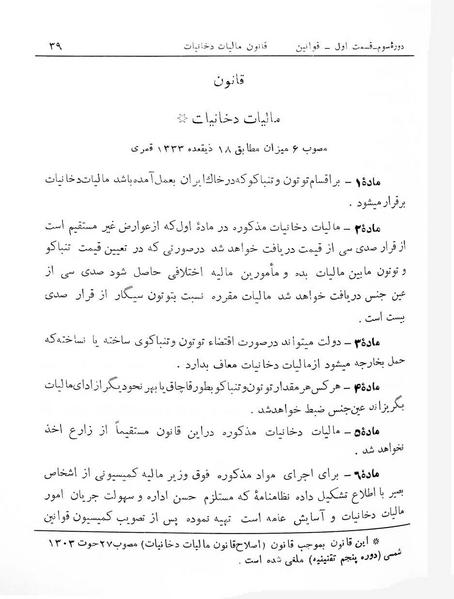 دورهٔ سوم ـ قسمت اول ـ قوانین قانون مالیات دخانیات ۳۹
قانون
مالیات دخانیات *
مصوب ۶ میزان مطابق ۱۸ ذیقعده ۱۳۳۳ قمری
مادهٔ ۱ ـ بر اقسام توتون و تنباکو که در خاک ایران بعمل آمده باشد مالیات دخانیات
برقرار میشود .
مادهٔ ۲ ـ مالیات دخانیات مذکوره در مادهٔ اول که از عوارض غیر مستقیم است
از قرار صدی سی از قیمت دریافت خواهد شد درصورتی که در تعیین قیمت تنباکو
و توتون مابین مالیات بده و مأمورین مالیه اختلافی حاصل شود صدی سی از
عین جنس دریافت خواهد شد مالیات مقرره نسبت بتوتون سیگار از قرار صدی
بیست است .
مادهٔ ۳ ـ دولت میتواند درصورت اقتضاء توتون و تنباکوی ساخته یا نساخته که
حمل بخارجه میشود از مالیات دخانیات معاف بدارد .
مادهٔ ۴ ـ هر کس هر مقدار توتون و تنباکو بطور قاچاق یا بهر نحو دیگر از ادای مالیات
بگریزاند عین جنس ضبط خواهد شد .
مادهٔ ۵ ـ مالیات دخانیات مذکوره در این قانون مستقیماً از زارع اخذ
نخواهد شد .
مادهٔ ۶ ـ برای اجرای مواد مذکوره فوق وزیر مالیه کمیسیونی از اشخاص
بصیر با اطلاع تشکیل داده نظامنامهٔ که مستلزم حسن اداره و سهولت جریان امور
مالیات دخانیات و آسایش عامه است تهیه نموده پس از تصویب کمیسیون قوانین
* این قانون بموجب قانون (اصلاح قانون مالیات دخانیات) مصوب ۲۷ حوت ۱۳۰۳
شمسی (دوره پنجم تقنینیه) ملغی شده است .